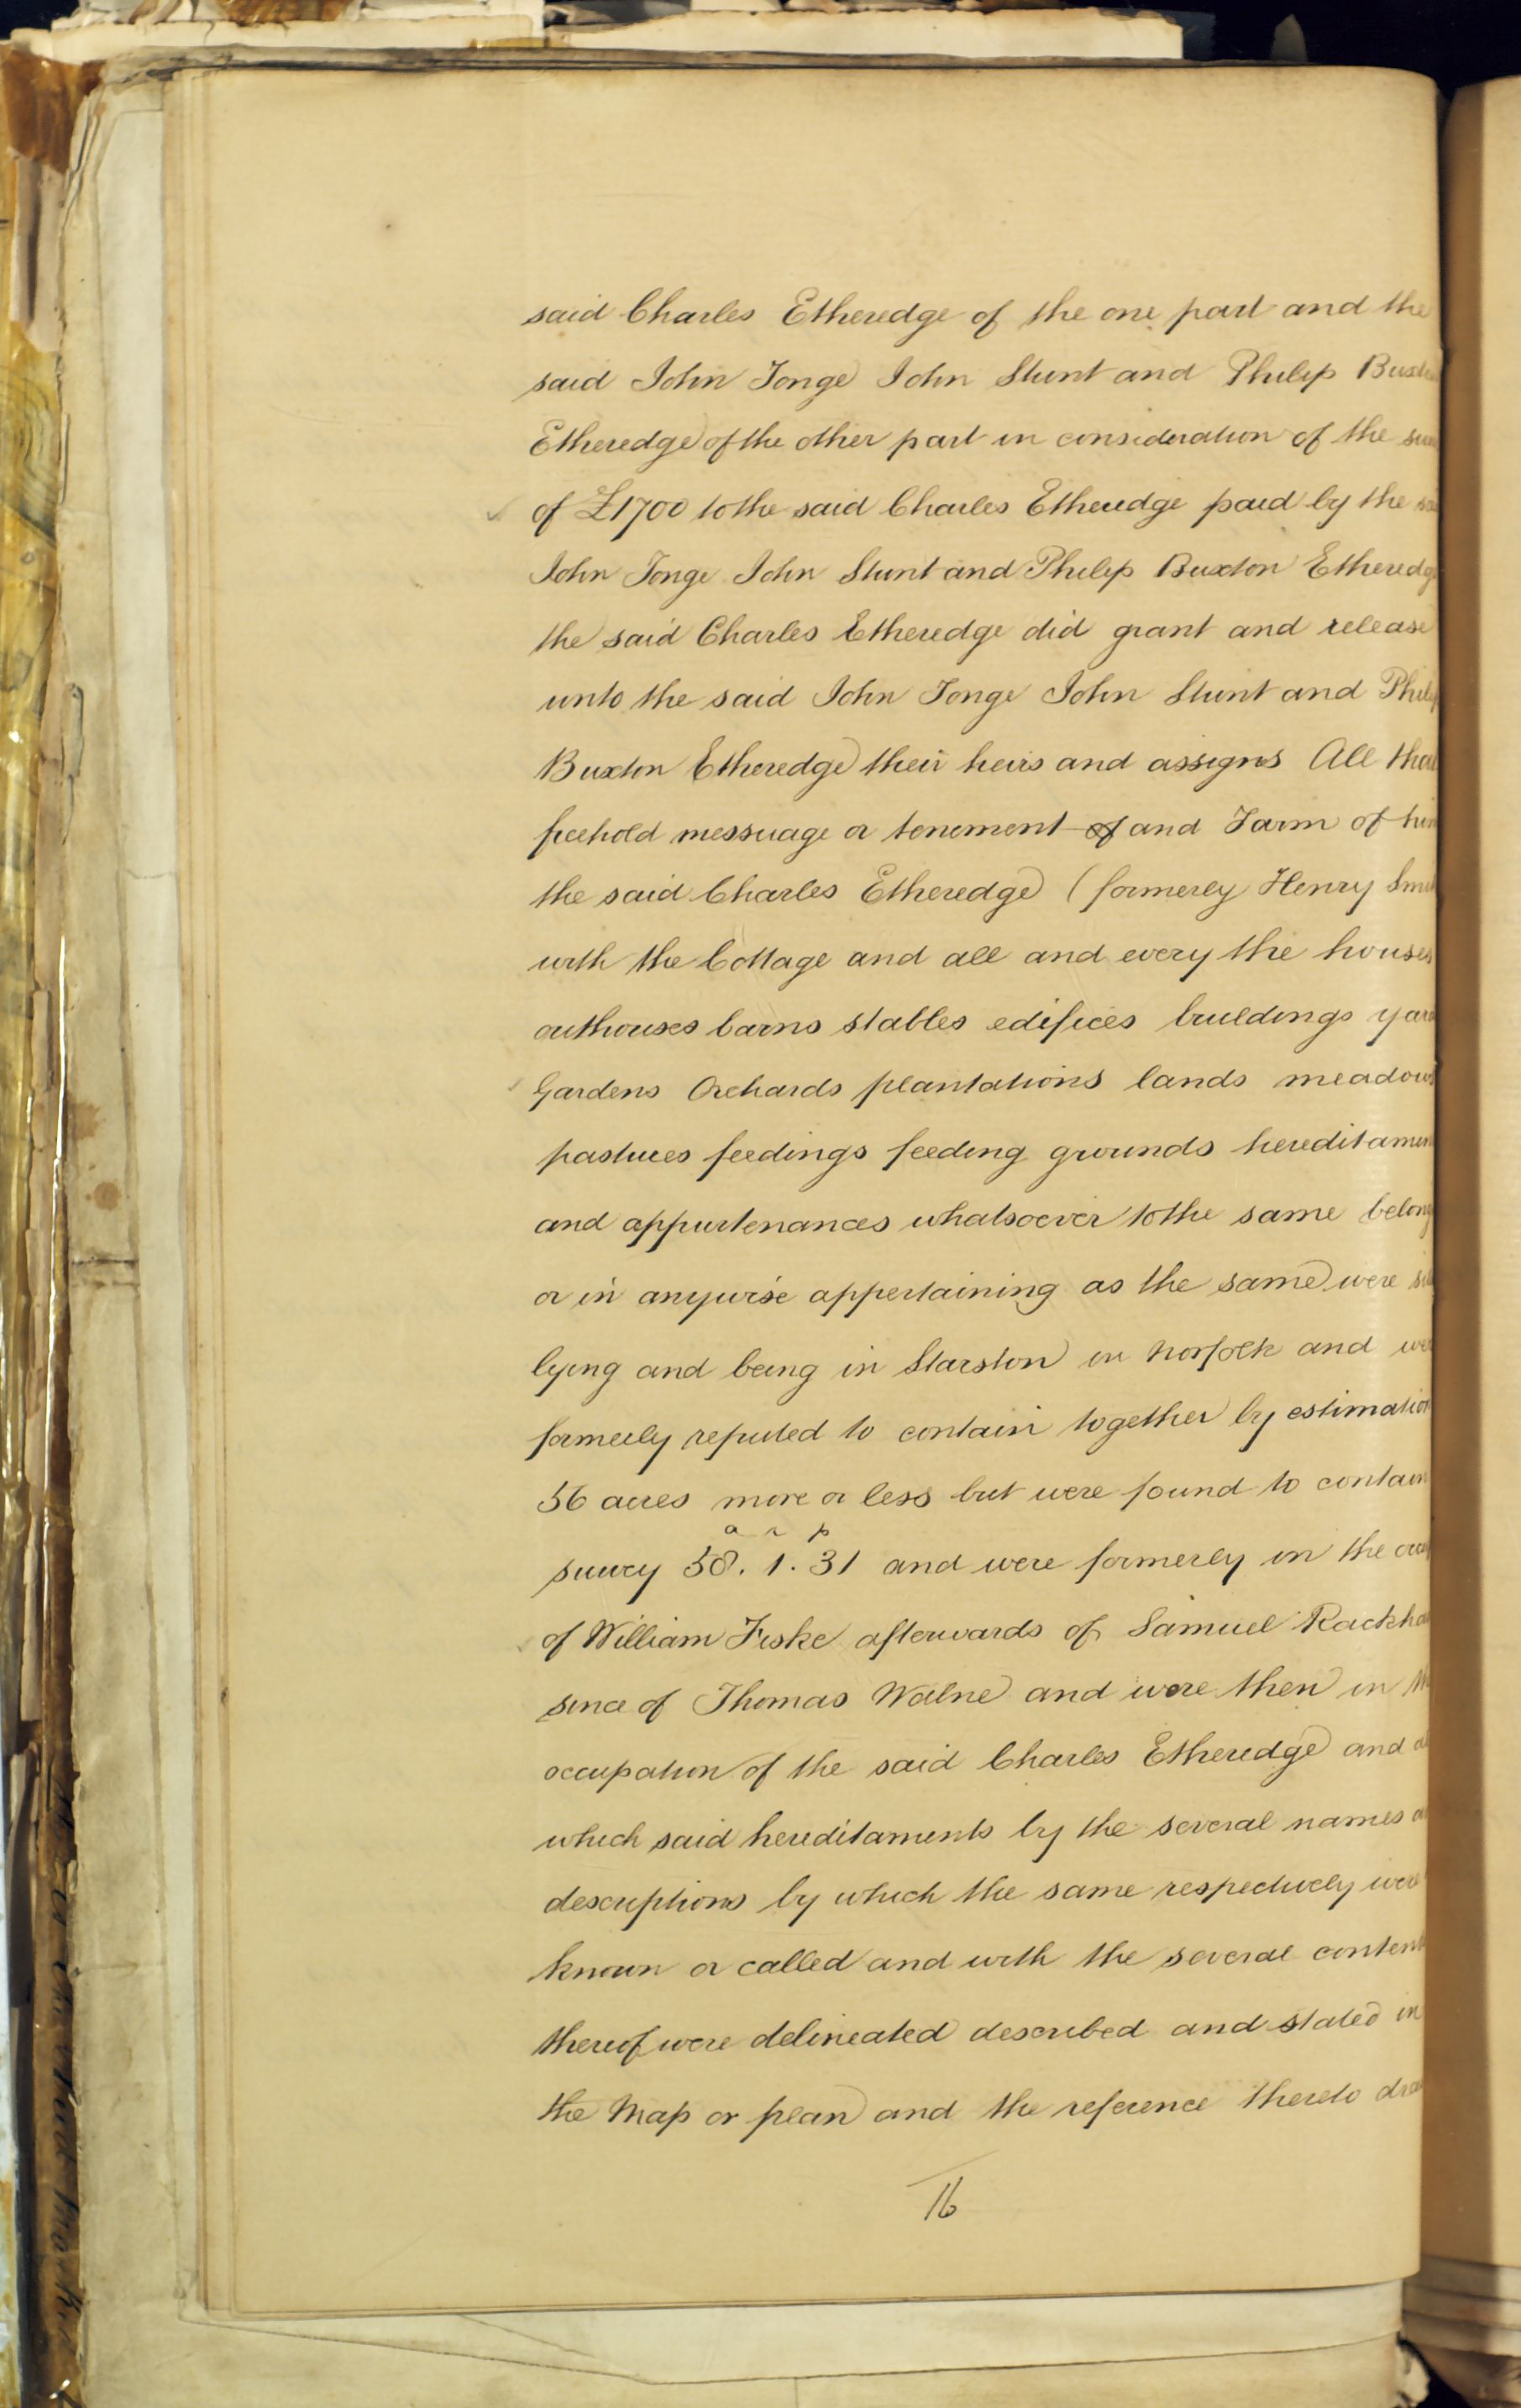 said Charles Etheredge of the one part and the
said John Tonge John Stunt and Philip Buxton
Etheredge of the other part in consideration of the sum
of £1700 to the said Charles Etheredge paid by the
John Tonge John Stunt and Philip Buxton Etheredge
the said Charles Etheredge did grant and release
unto the said John Tonge John Stunt and Philip
Buxton Etheredge their heirs and assigns All that
freehold messuage or tenement of and Farm of him
the said Charles Etheredge (formerly Henry
with the Cottage and all and every the houses
outhouses barns stables edifices buildings yard
Gardens Orchards plantations lands meadows
pastures feedings feeding grounds hereditamen
and appurtenances whatsoever to the same belong
or in anywise appertaining as the same were
lying and being in Starston in Norfolk and wer
formerly reputed to contain together by estimation
56 acres more or less but were found to contain
a r p
survey 58. 1. 31 and were formerly in the occup
of William Fiske afterwards of Samuel Rackha
since of Thomas Walne and were then in the
occupation of the said Charles Etheredge and
which said hereditaments by the several names
descriptions by which the same respectively were
known or called and with the several content
thereof were delineated described and stated in
the Map or plan and the reference thereto dra
16